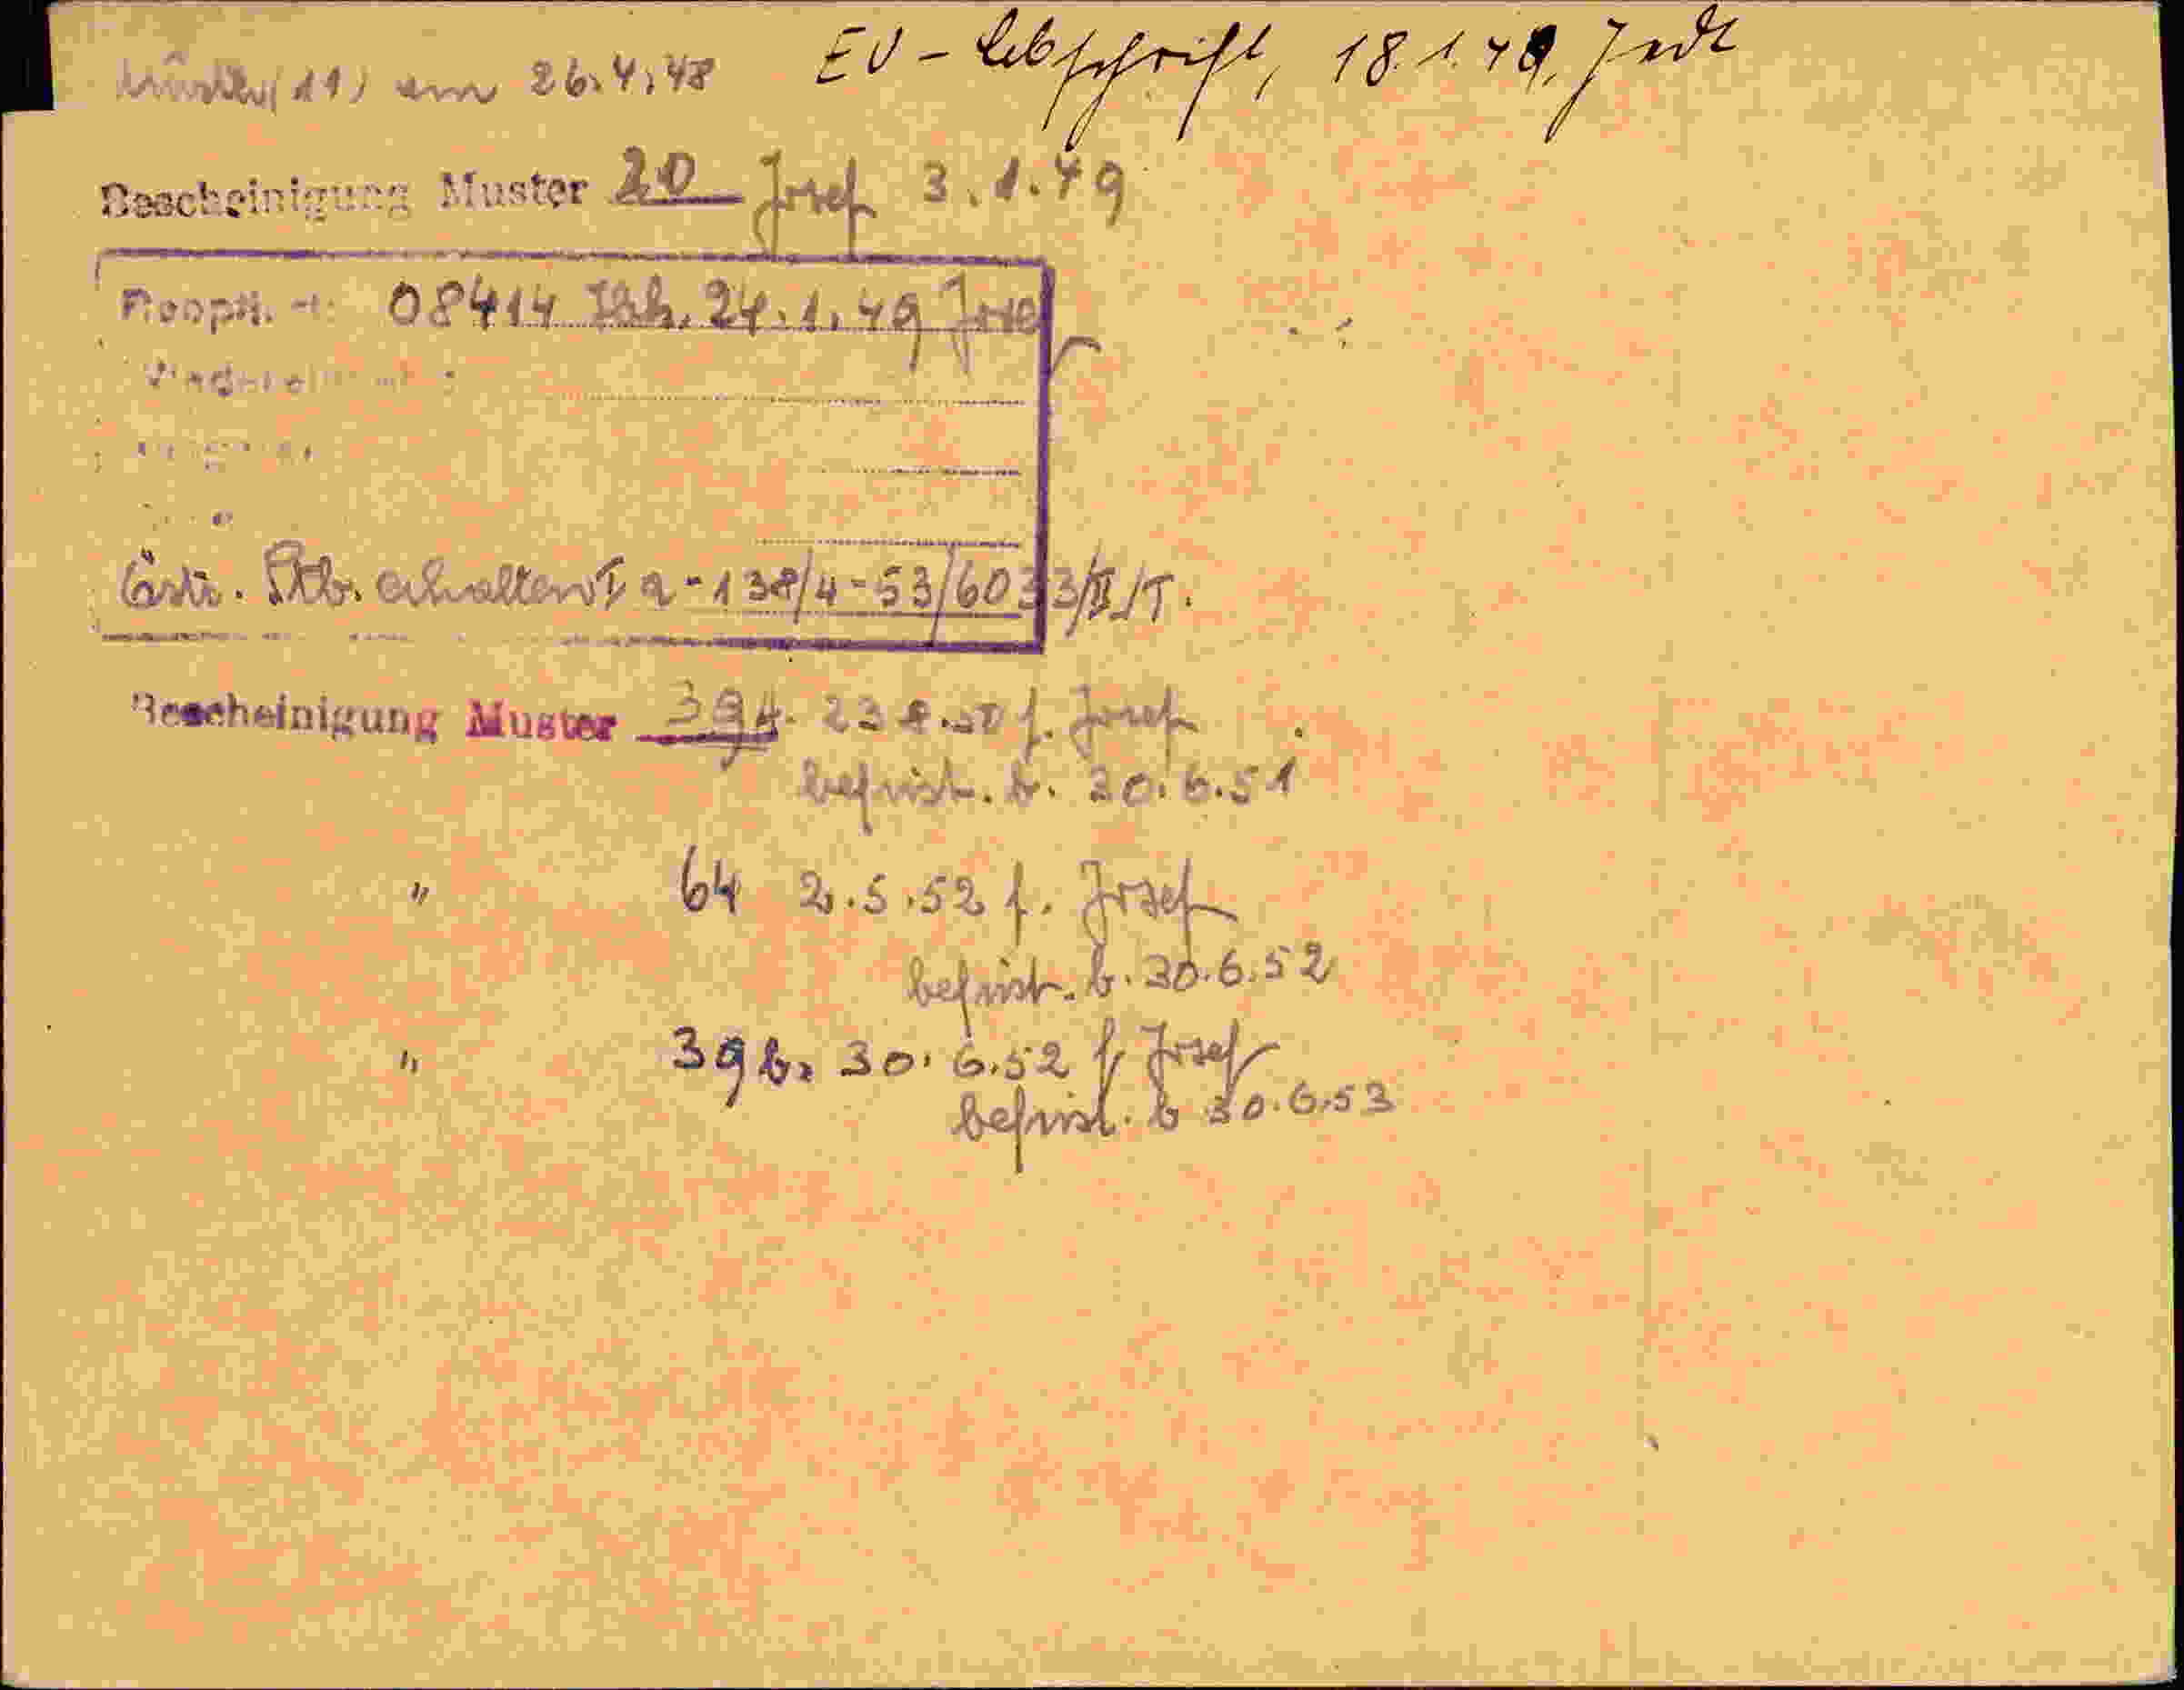 (11) am 26.4.48 EV-Abschrift, 18.1.49,
Bescheinigung Muster 20 Josef 3.1.49
Reopt. 08414 24.1.49 Josef
Östr. Stb. erhalten I a-138/4-53/6033/II/T.
Bescheinigung Muster 39a. f. Josef
befrist. b. 30.6.51
" 64 2.5.52 f. Josef
befrist. b. 30.6.52
" 39b. 30.6.52 f. Josef
befrist. b 30.6.53